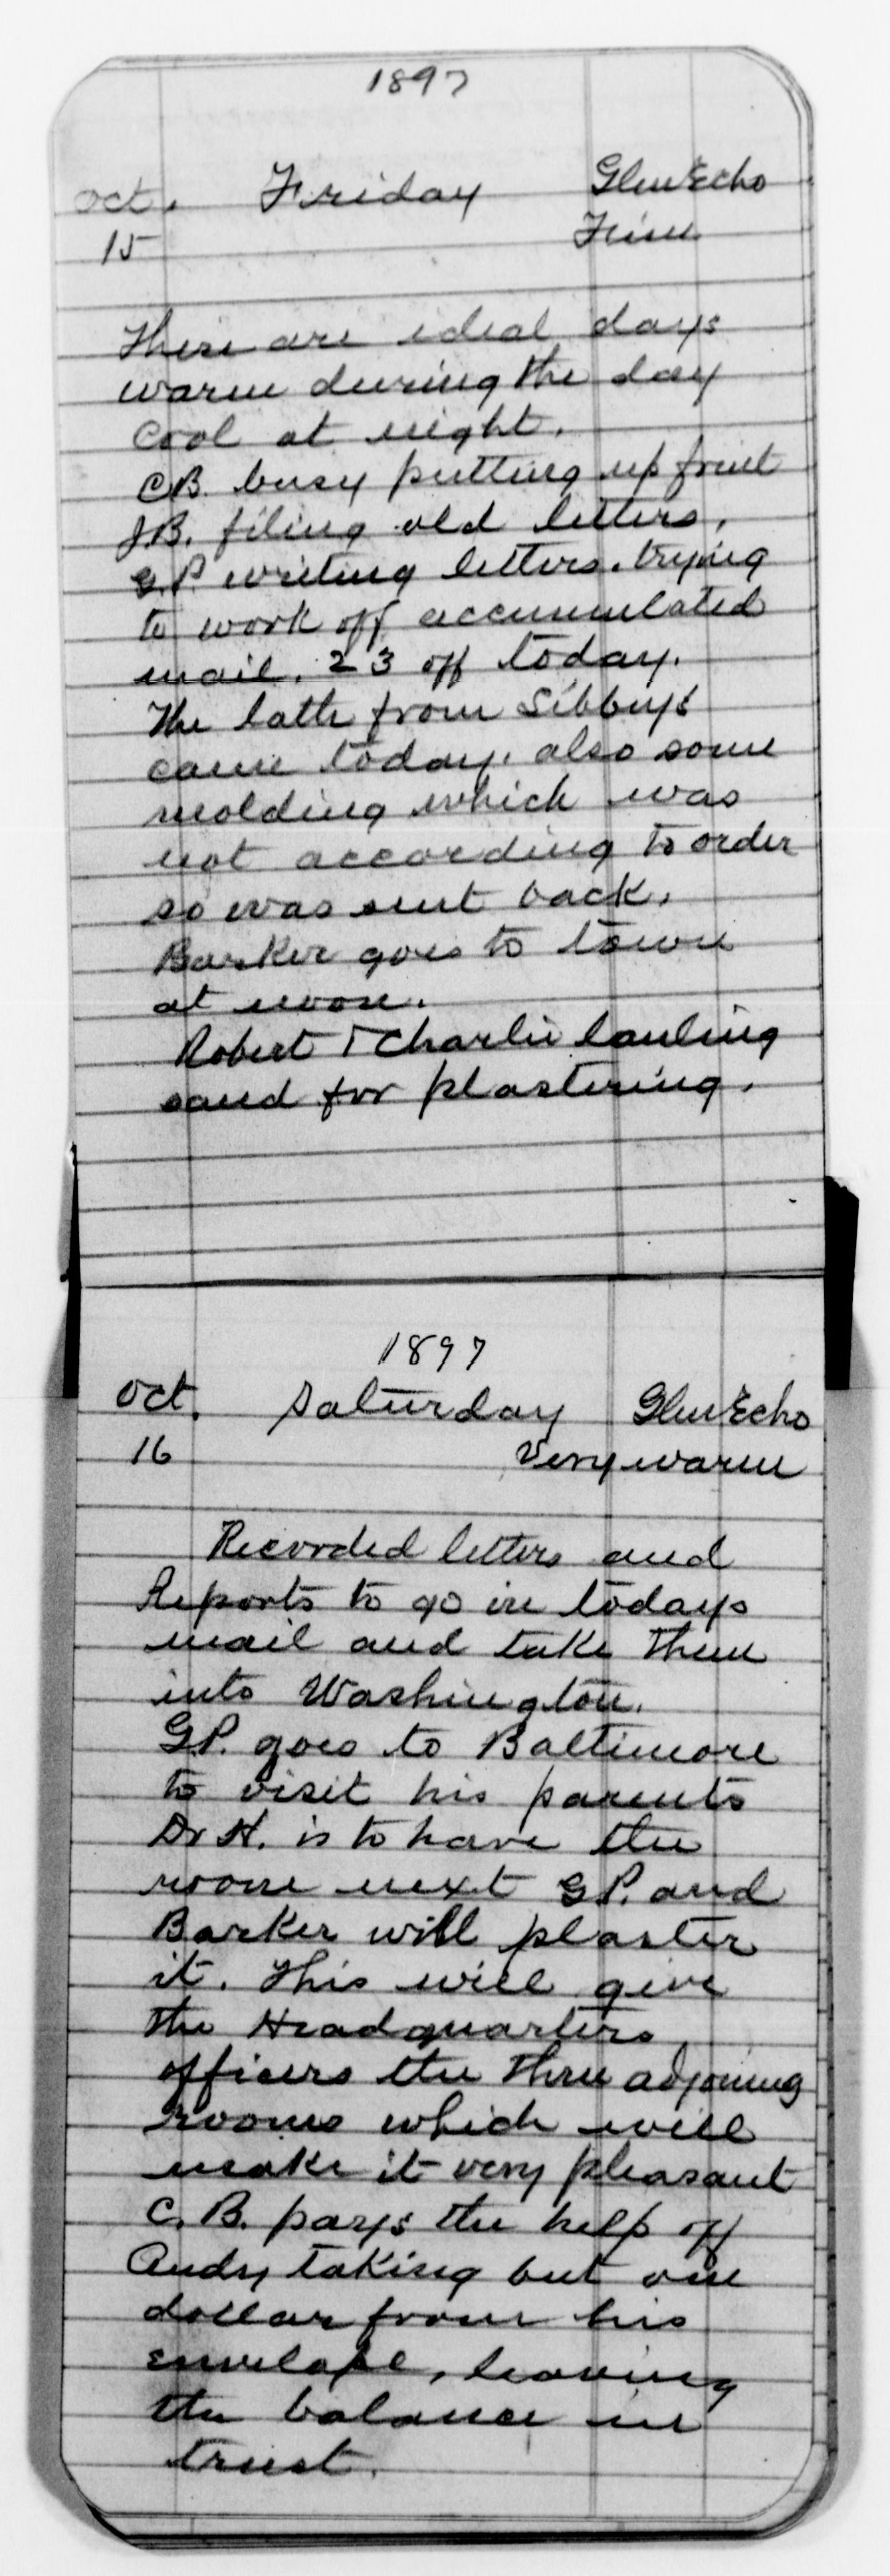 1897
Oct. Friday Glen Echo
15 Fine
These are ideal days
warm during the day
cool at night.
C.B. busy putting up fruit
J.B. filing old letters.
G.P. writing letters. trying
to work off accumulated
mail. 23 off today.
The lath from Libbeys
came today. also some
molding which was
not according to order
so was sent back.
Barker goes to town
at noon.
Robert & Charlie hauling
sand for plastering.
1897
Oct. Saturday Glen Echo
16 Very warm
Recorded letters and
Reports to go in todays
mail and take them
into Washington.
G.P. goes to Baltimore
to visit his parents
Dr H. is to have the
room next G.P. and
Barker will plaster
it. This will give
the Headquarters
officers the three adjoining
rooms which will
make it very pleasant
C. B. pays the help off
Andy taking but one
dollar from his
envelope, leaving
the balance in
trust.